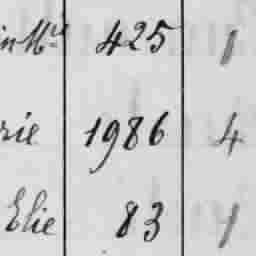 in Mie 425 1
rie 1986 4
Elie 83 1